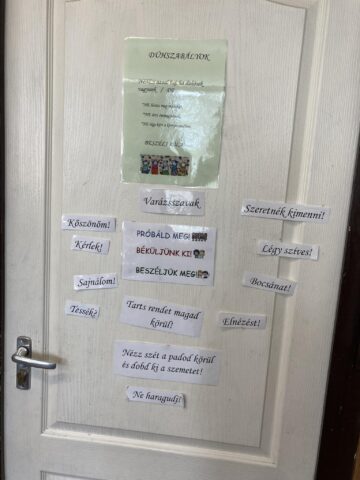 DÜHSZABÁLYOK
vagyunk
BESZÉLJ RÓLA!
Varázsszavak
Köszönöm!
Szeretnék kimenni!
PRÓBÁLD MEG!
Kérlek!
BÉKÜLJÜNK KI!
Légy szíves!
BESZÉLJÜK MEG!
Sajnálom!
Bocsánat!
Tessék?
Tarts rendet magad
körül!
Elnézést!
Nézz szét a padod körül
és dobd ki a szemetet!
Ne haragudj!